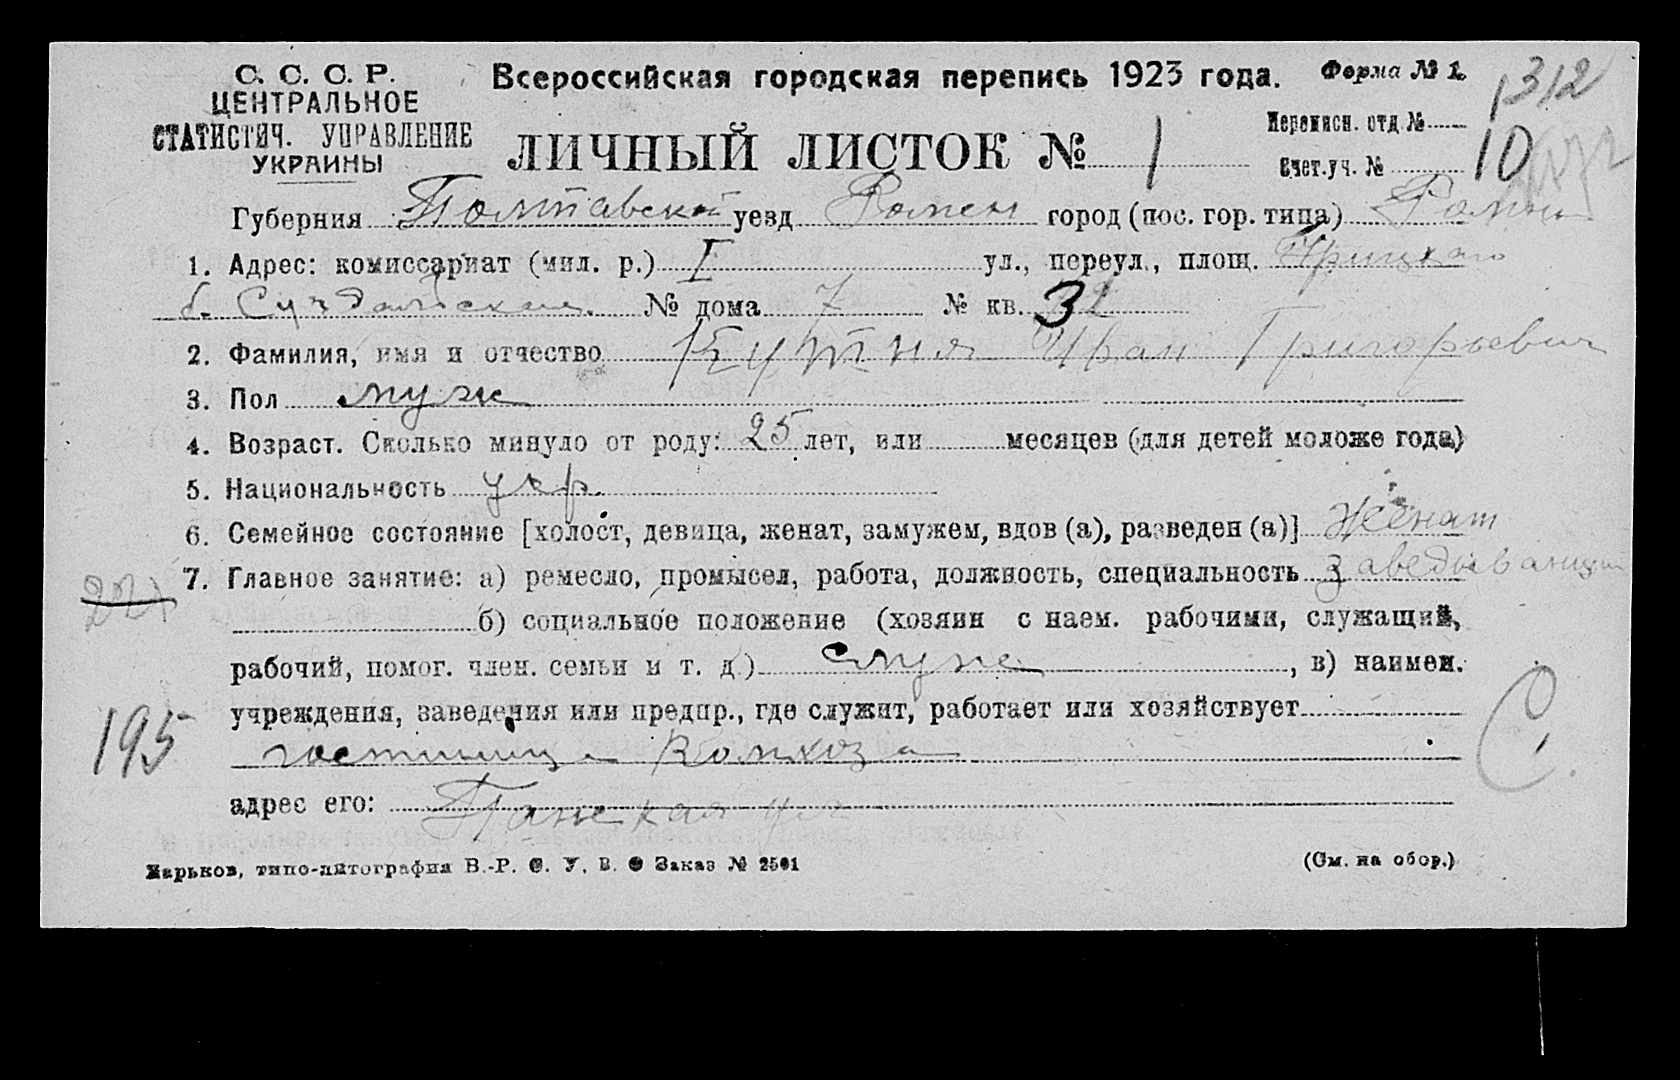 С. С. С. Р.
ЦЕНТРАЛЬНОЕ
СТАТИСТИЧ. УПРАВЛЕНИЕ
УКРАИНЫ
Всероссийская городская перепись 1923 года.
Форма № 1.
1312
ЛИЧНЫЙ ЛИСТОК № 1
Переписн. отд. №
Счет. уч. № 10
Губерния Полтавской уезд Ромен город (пос. гор. типа) Ромны
1. Адрес: комиссариат (мил. р.) I ул., переул., площ. Урицкого
б. Суздальская. № дома 7 № кв. 32
2. Фамилия, имя и отчество Кутня Иван Григорьевич
3. Пол муж
4. Возраст. Сколько минуло от роду: 25 лет, или месяцев (для детей моложе года)
5. Национальность укр.
6. Семейное состояние [холост, девица, женат, замужем, вдов (а), разведен (а)] Женат
7. Главное занятие: а) ремесло, промысел, работа, должность, специальность заведывающий
б) социальное положение (хозяин с наем. рабочими, служащий,
рабочий, помог. член. семьи и т. д.) служ. , в) наимен.
учреждения, заведения или предпр., где служит, работает или хозяйствует
195
гостиница Комхоза
адрес его:
С.
Харьков, типо-литография В.-Р. С. У. В. О Заказ № 2501
(См. на обор.)